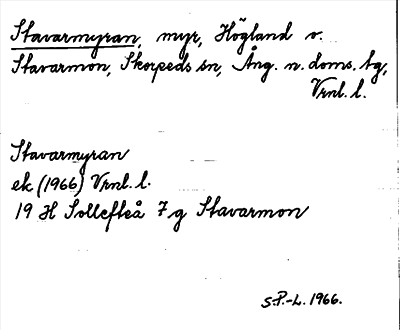 Stavarmyran, myr, Högland v.
Stavarmon, Skorpeds sn, Ång. n. doms. tg,
Vrnl. l.
Stavarmyran
ek (1966) Vrnl. l.
19 H Sollefteå 7 g Stavarmon
S.P.-L. 1966.